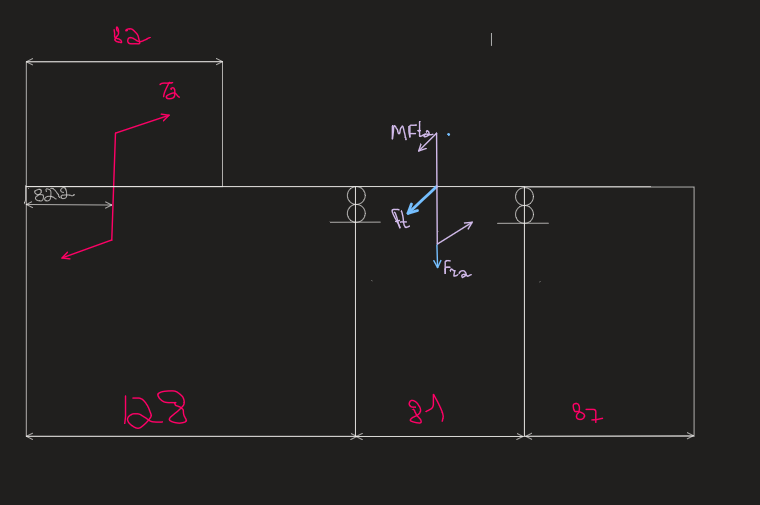 82
T2
MFt2
82\2
Ft
Fr2
128
81
87